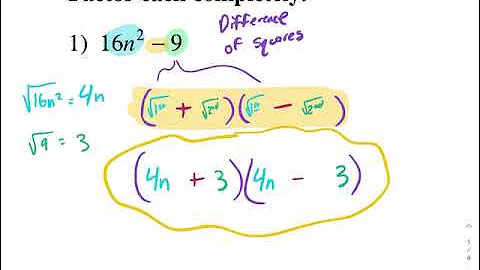 Factor each completely.
1) 16n² − 9
Difference of squares
√16n² = 4n
√9 = 3
(√1st + √2nd)(√1st − √2nd)
(4n + 3)(4n − 3)